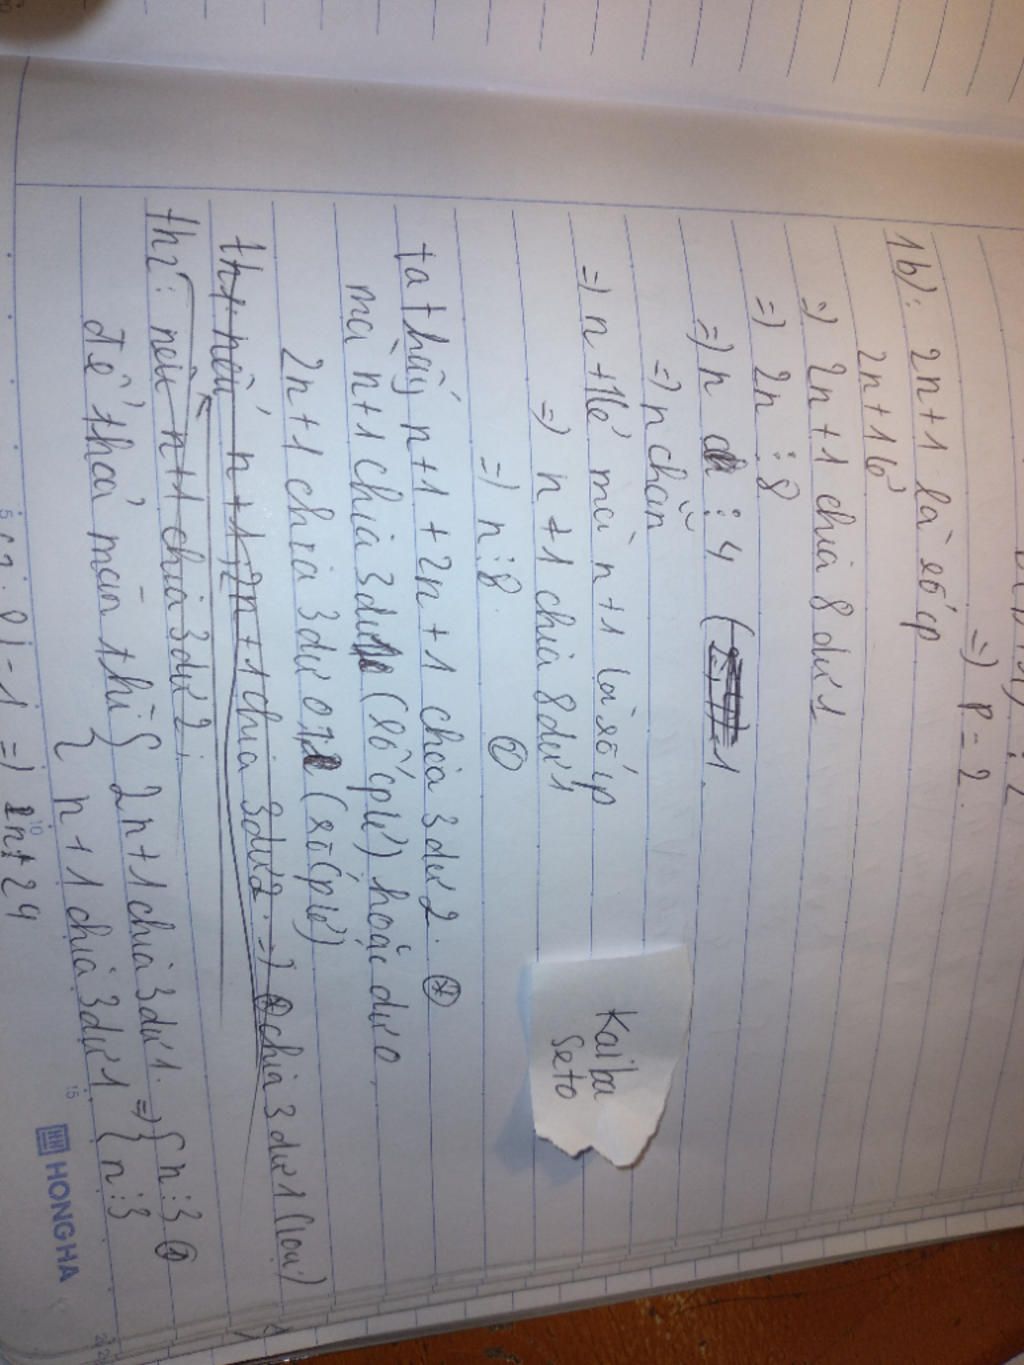 =) P = 2.
1b): 2n+1 là số cp
2n+1 lẻ
=) 2n+1 chia 8 dư 1
=) 2n ⋮ 8
=) n ⋮ 4
=) n chẵn
=) n+1 lẻ mà n+1 là số cp
=) n+1 chia 8 dư 1
=) n ⋮ 8.
ta thấy n+1 + 2n+1 chia 3 dư 2.
mà n+1 chia 3 dư 1 (số cp lẻ) hoặc dư 0
2n+1 chia 3 dư 0, 1 (số cp lẻ)
th1: nếu n+1, 2n+1 chia 3 dư 2 =) chia 3 dư 1 (loại)
th2: nếu n+1 chia 3 dư 2;
để thỏa mãn thì { 2n+1 chia 3 dư 1. =) { n ⋮ 3
{ n+1 chia 3 dư 1 { n ⋮ 3
= 1 =) n ⋮ 24
Kaiba
Seto
5
10
15
HONG HA